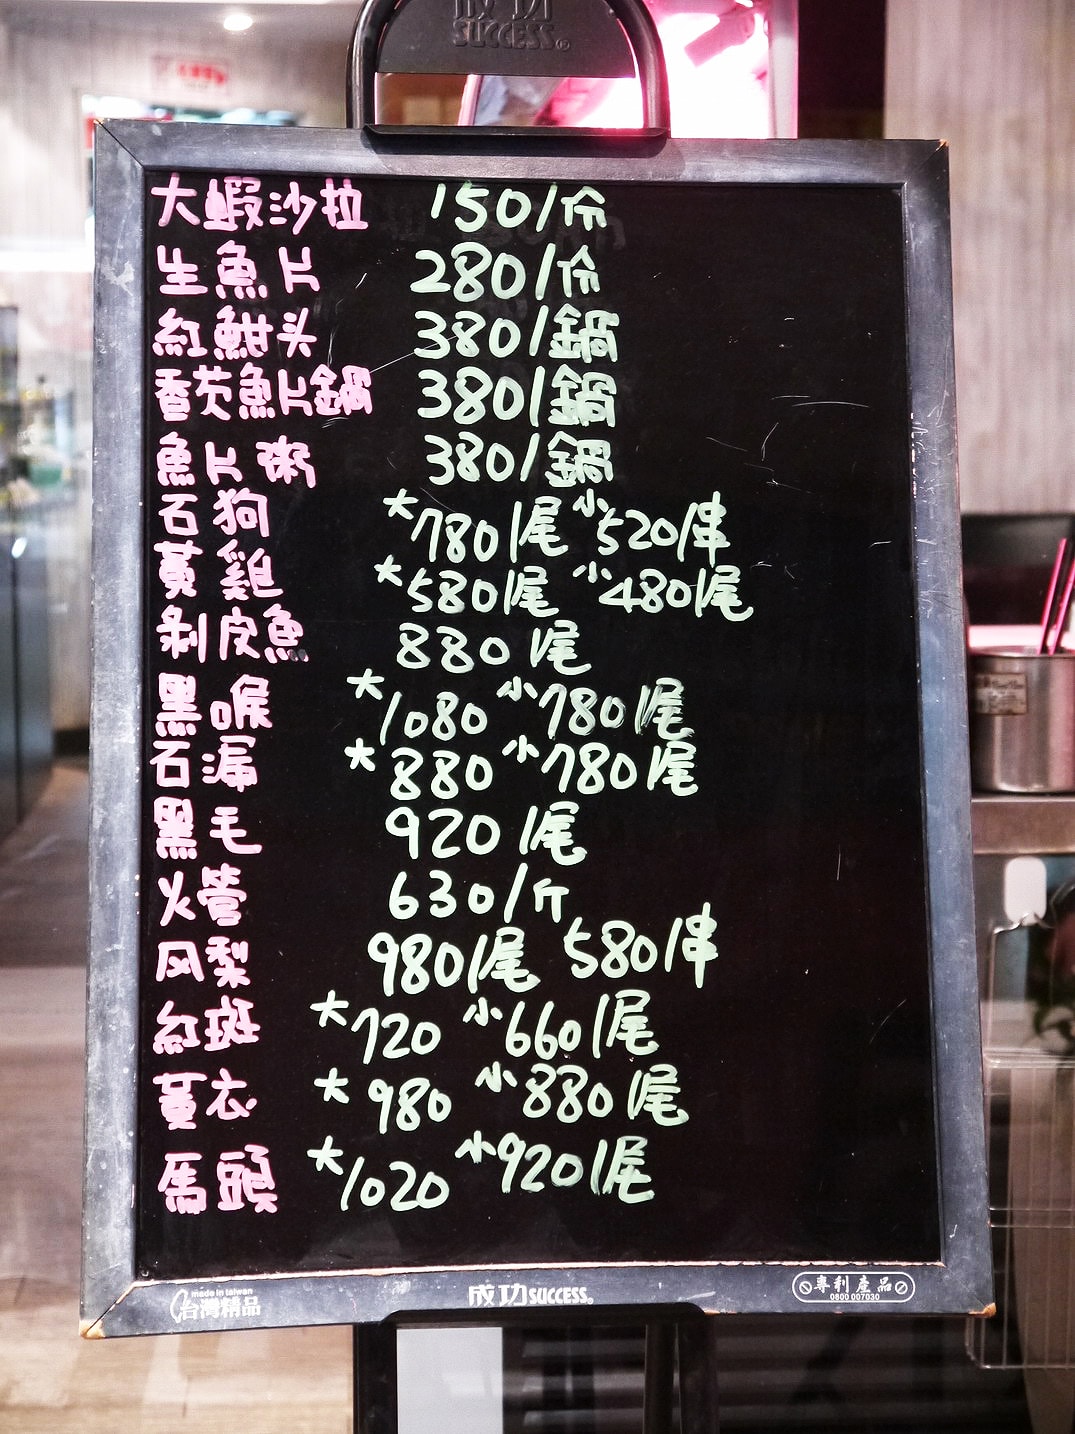 成功
SUCCESS®
大蝦沙拉 150/份
生魚片 280/份
紅魽头 380/鍋
香芡魚片鍋 380/鍋
魚片粥 380/鍋
石狗 大780/尾 小520/串
黃雞 大580/尾 小480/尾
剝皮魚 880/尾
黑喉 大1080 小780/尾
石漏 大880 小780/尾
黑毛 920/尾
火管 630/斤
风梨 980/尾 580/串
紅斑 大720 小660/尾
黃衣 大980 小880/尾
馬頭 大1020 小920/尾
made in taiwan
台灣精品
成功SUCCESS®
專利產品
0800 007030